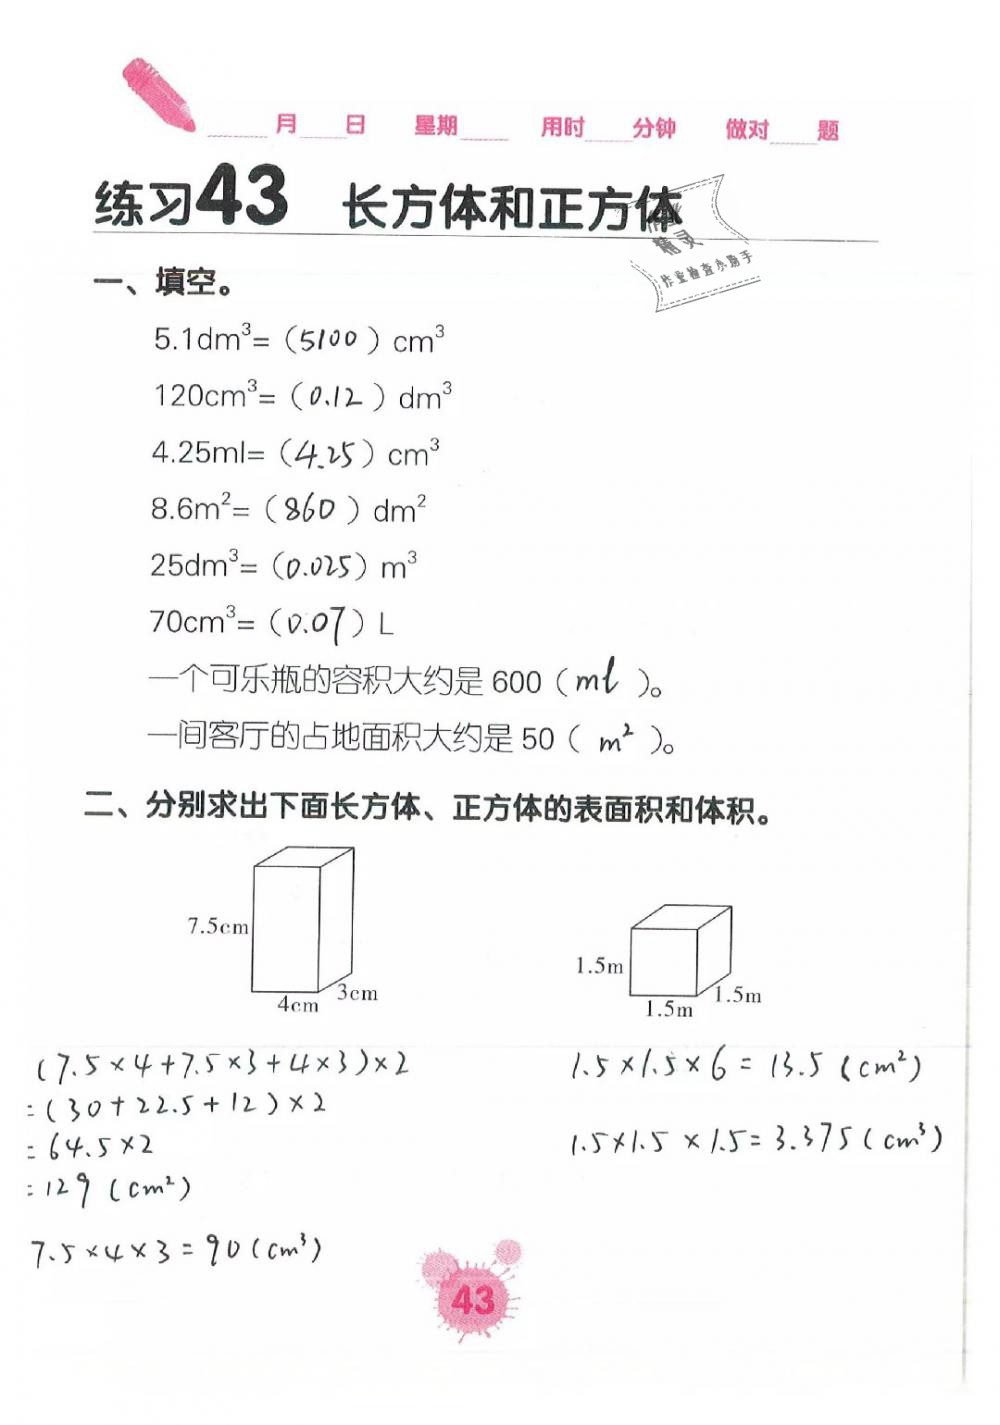 ____月____日 星期____ 用时____分钟 做对____题
练习43 长方体和正方体
精灵
作业检查小助手
一、填空。
5.1dm³=（5100）cm³
120cm³=（0.12）dm³
4.25ml=（4.25）cm³
8.6m²=（860）dm²
25dm³=（0.025）m³
70cm³=（0.07）L
一个可乐瓶的容积大约是600（ml）。
一间客厅的占地面积大约是50（m²）。
二、分别求出下面长方体、正方体的表面积和体积。
7.5cm
4cm
3cm
1.5m
1.5m
1.5m
(7.5×4+7.5×3+4×3)×2
=(30+22.5+12)×2
=64.5×2
=129(cm²)
7.5×4×3=90(cm³)
1.5×1.5×6=13.5(cm²)
1.5×1.5×1.5=3.375(cm³)
43